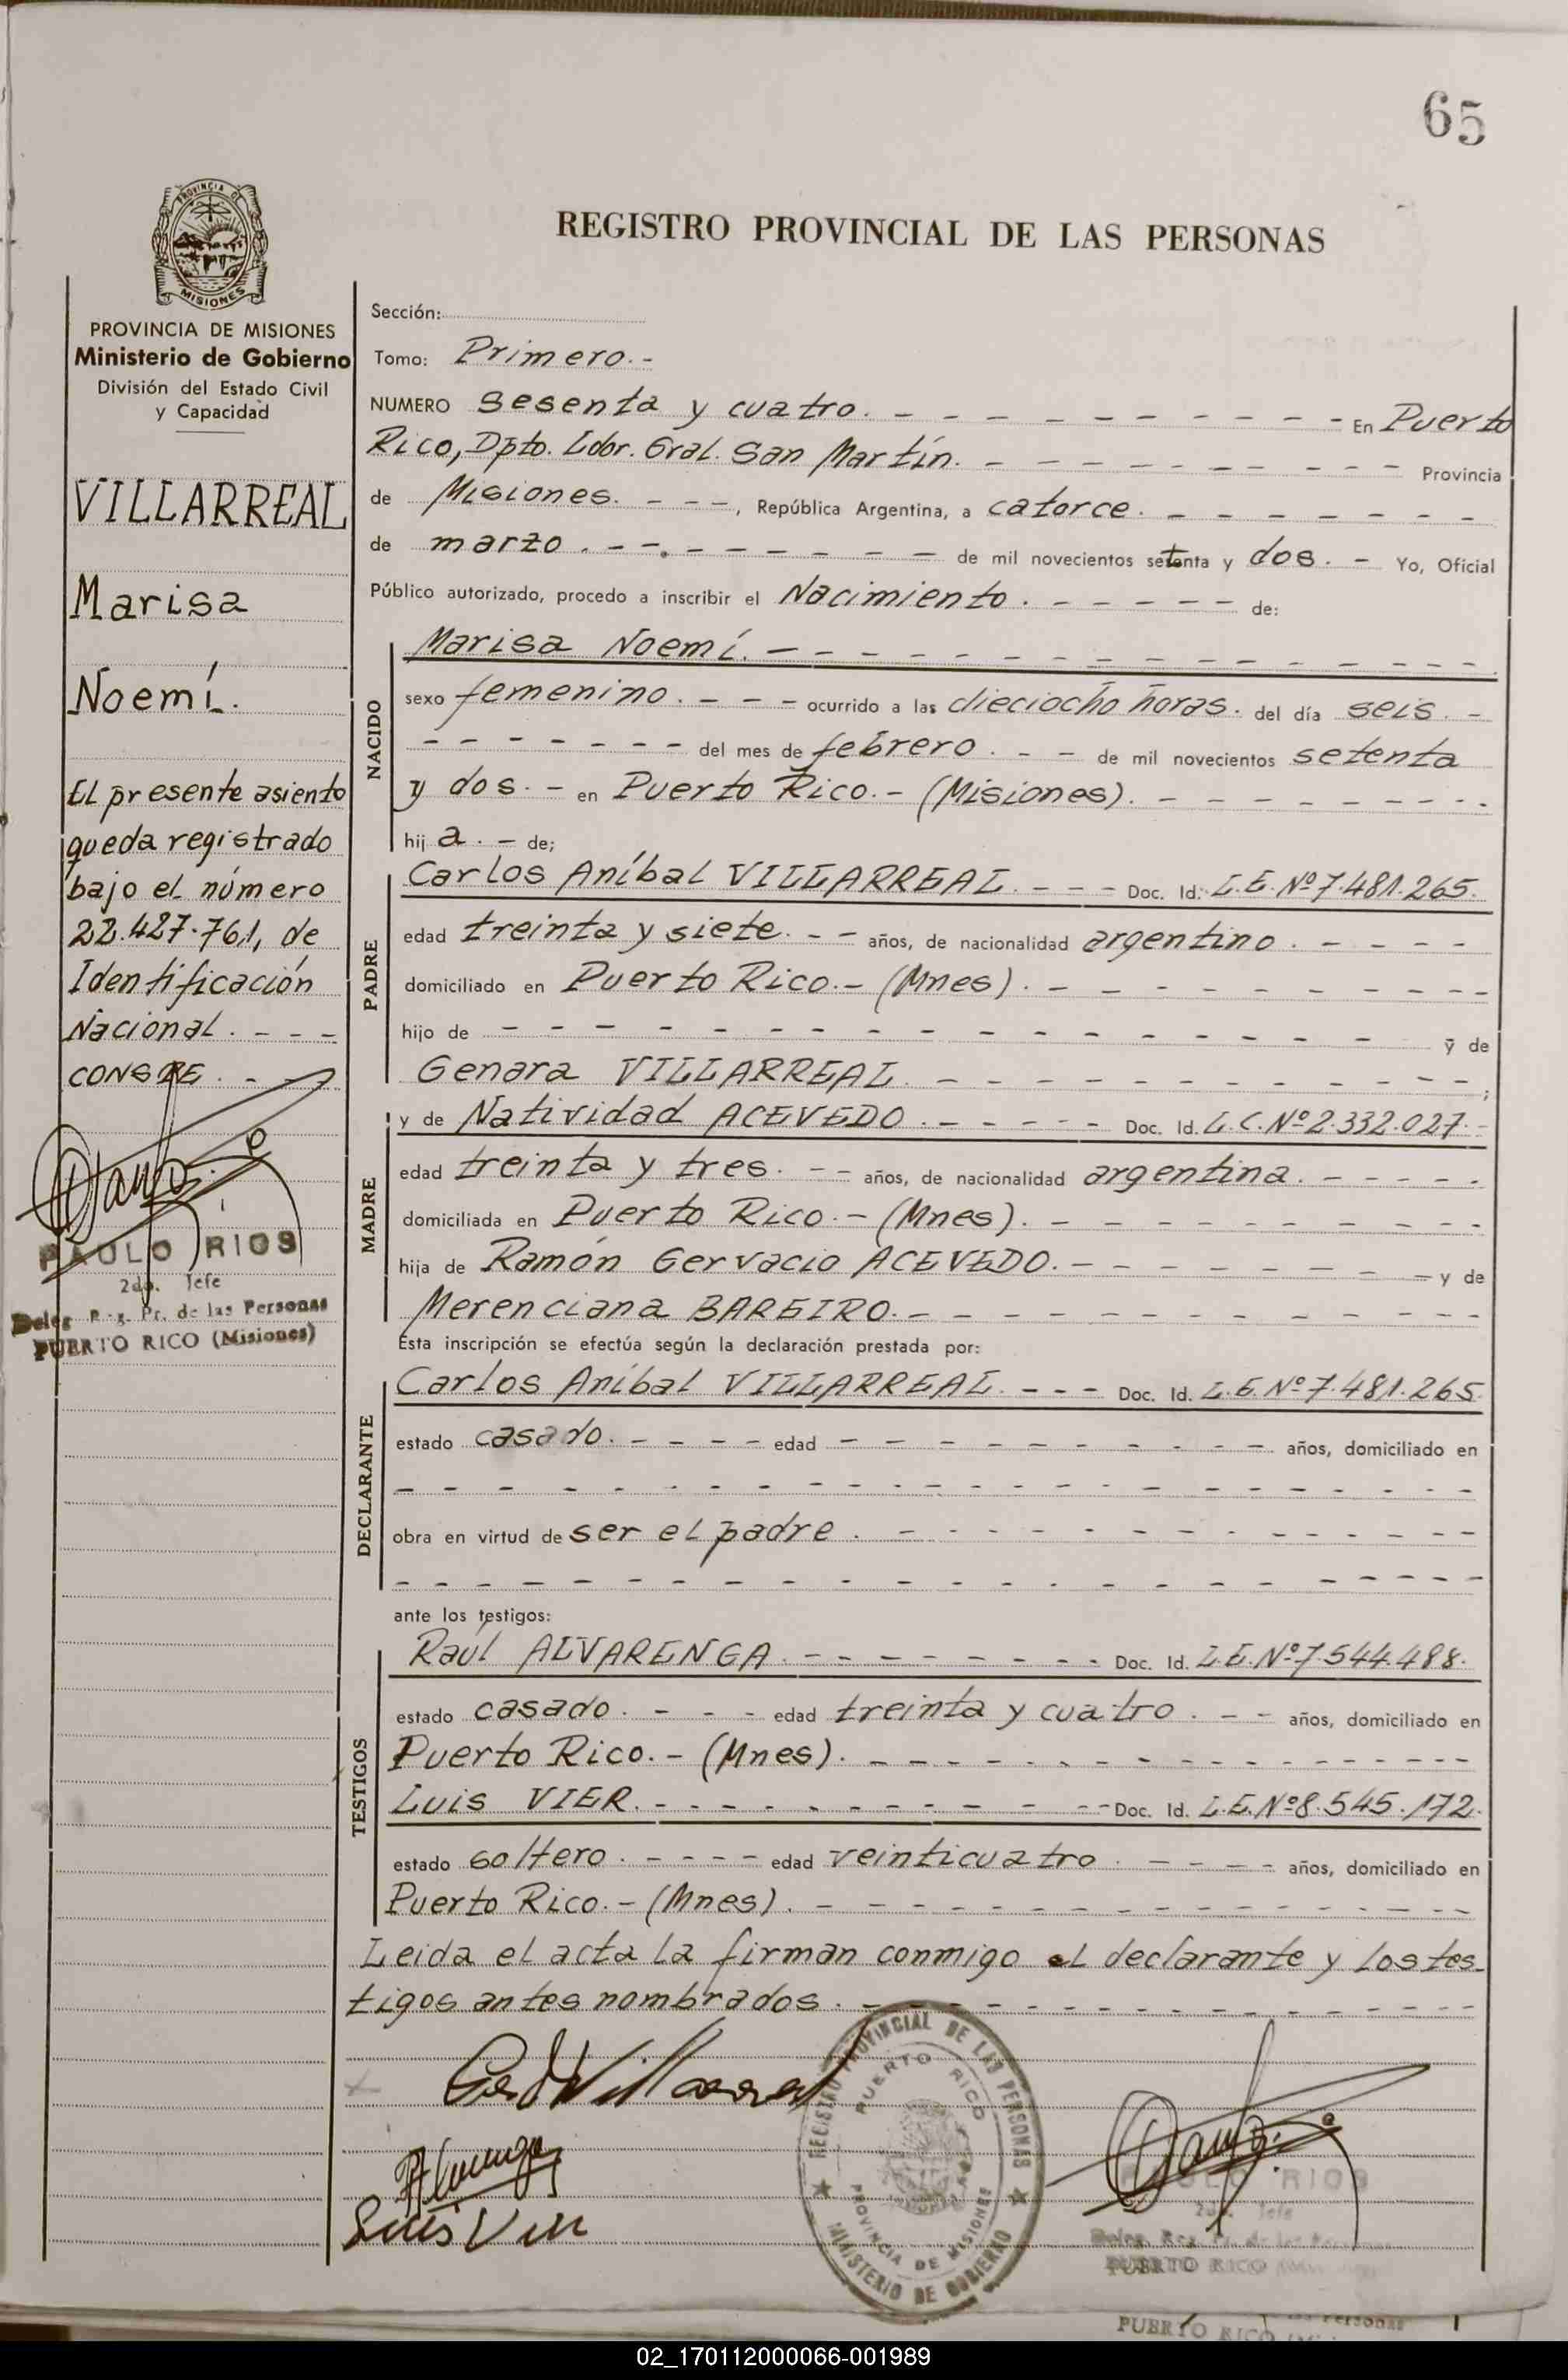 65
PROVINCIA DE
MISIONES
REGISTRO PROVINCIAL DE LAS PERSONAS
PROVINCIA DE MISIONES
Ministerio de Gobierno
División del Estado Civil
y Capacidad
VILLARREAL
Marisa
Noemí.
El presente asiento
queda registrado
bajo el número
22.427.761, de
Identificación
Nacional. - - -
CONSTE. -
PAULO RIOS
2do. Jefe
Deleg. Reg. Pr. de las Personas
PUERTO RICO (Misiones)
Sección:
Tomo: Primero.-
NUMERO Sesenta y cuatro. - - - - - - - - - - En Puerto
Rico, Dpto. Ldor. Gral. San Martín. - - - - - - - - - Provincia
de Misiones. - - -, República Argentina, a catorce. - - - - - - -
de marzo. - - - - - - - - - de mil novecientos setenta y dos. - Yo, Oficial
Público autorizado, procedo a inscribir el Nacimiento. - - - - - - de:
NACIDO
Marisa Noemí. - - - - - - - - - - - - - - - -
sexo femenino. - - - ocurrido a las dieciocho horas. del día seis. -
- - - - - - - - del mes de febrero. - - de mil novecientos setenta
y dos. - en Puerto Rico.- (Misiones). - - - - - - - - -
hij a. - de;
PADRE
Carlos Aníbal VILLARREAL. - - - Doc. Id: L.E. Nº 7.481.265.
edad treinta y siete. - - años, de nacionalidad argentino. - - - -
domiciliado en Puerto Rico.- (Mnes). - - - - - - - - - -
hijo de - - - - - - - - - - - - - - - - y de
Genara VILLARREAL. - - - - - - - - - - - - ;
MADRE
y de Natividad ACEVEDO. - - - - - Doc. Id. L.C. Nº 2.332.027.-
edad treinta y tres. - - años, de nacionalidad argentina. - - - - -
domiciliada en Puerto Rico.- (Mnes). - - - - - - - - - -
hija de Ramón Gervacio ACEVEDO. - - - - - - - - y de
Merenciana BAREIRO. - - - - - - - - - - - -
Esta inscripción se efectúa según la declaración prestada por:
DECLARANTE
Carlos Aníbal VILLARREAL. - - - Doc. Id. L.E. Nº 7.481.265
estado casado. - - - - edad - - - - - - - - - - años, domiciliado en
- - - - - - - - - - - - - - - - - - - -
obra en virtud de ser el padre. - - - - - - - - - - -
- - - - - - - - - - - - - - - - - - - -
ante los testigos:
TESTIGOS
Raúl ALVARENGA. - - - - - - - - Doc. Id. L.E. Nº 7.544.488.
estado casado. - - - edad treinta y cuatro. - - años, domiciliado en
Puerto Rico.- (Mnes). - - - - - - - - - - - - - -
Luis VIER. - - - - - - - - - - - Doc. Id. L.E. Nº 8.545.172.
estado soltero. - - - - edad veinticuatro. - - - - años, domiciliado en
Puerto Rico.- (Mnes). - - - - - - - - - - - - - -
Leida el acta la firman conmigo el declarante y los tes-
tigos antes nombrados. - - - - - - - - - - - - - -
Villarreal
Luis Vier
REGISTRO PROVINCIAL DE LAS PERSONAS
PUERTO RICO
PROVINCIA DE MISIONES
MINISTERIO DE GOBIERNO
PAULO RIOS
2do. Jefe
Deleg. Reg. Pr. de las Personas
PUERTO RICO
Personas
PUERTO RICO
02_170112000066-001989